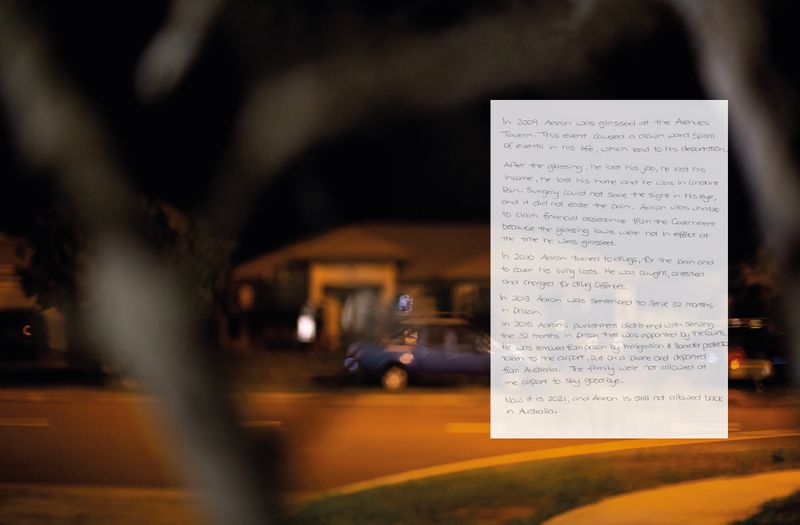 In 2009 Aaron was glassed at the Avenues
Tavern. This event caused a down ward spiral
of events in his life, which lead to his deportation.
After the glassing, he lost his job, he lost his
income, he lost his home and he was in constant
Pain. Surgery could not save the sight in his eye,
and it did not ease the pain. Aaron was unable
to claim financial assistance from the Government
because the glassing laws were not in effect at
the time he was glassed.
In 2010 Aaron turned to drugs, for the pain and
to cover his living costs. He was caught, arrested
and charged for drug offences.
In 2013 Aaron was sentenced to serve 32 months
in prison.
In 2015 Aaron's punishment didn't end with serving
the 32 months in prison that was appointed by the courts.
He was removed from prison by Immigration & Boarder
taken to the airport, put on a plane and deported
from Australia. The family were not allowed at
the airport to say goodbye.
Now it is 2021, and Aaron is still not allowed back
in Australia.